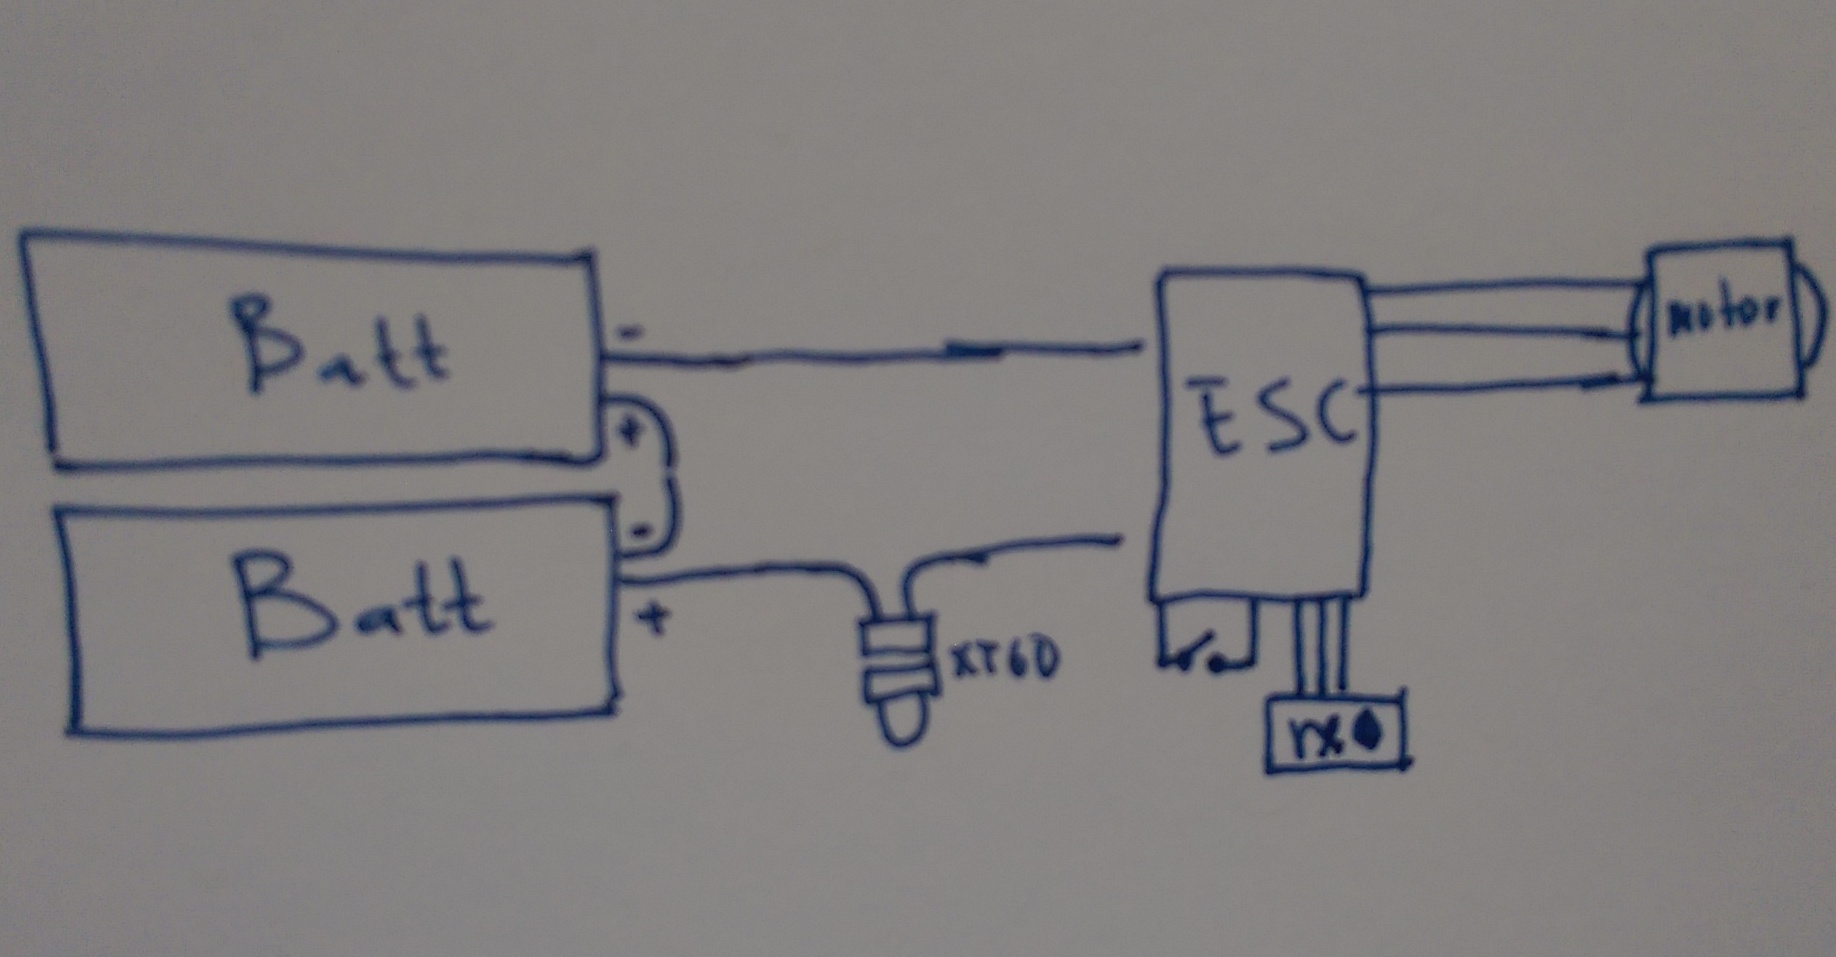 Batt
-
+
Batt
-
+
XT60
ESC
motor
rx